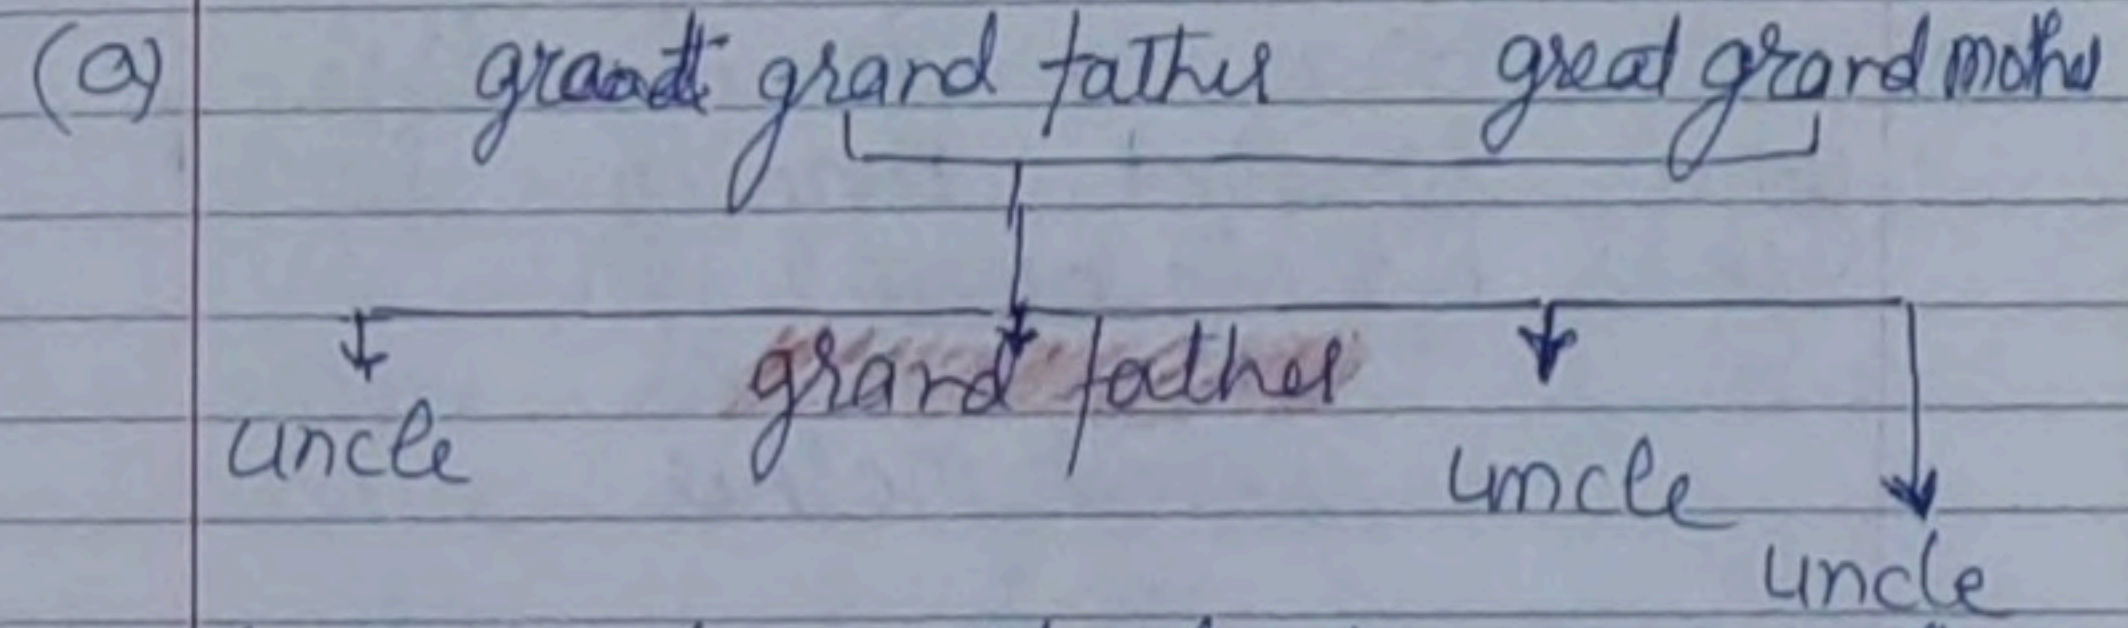 (a) great grand father great grand mother
grand father
uncle uncle
uncle